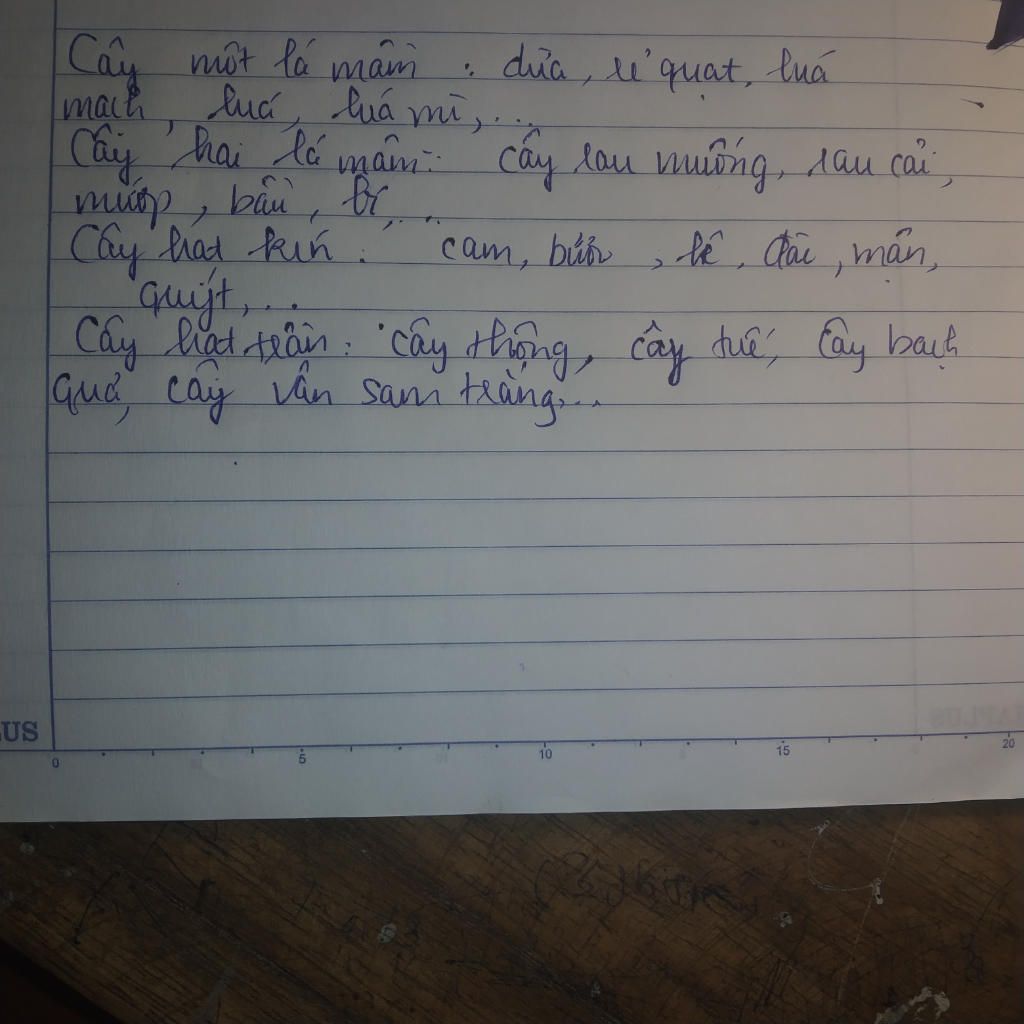 Cây một lá mầm : dừa, rẻ quạt, luá
mạch, luá, luá mì,...
Cây hai lá mầm : cây rau muống, rau cải,
mướp, bầu, bí,...
Cây hạt kín : cam, bưởi, lê, đào, mận,
quýt,...
Cây hạt trần : cây thông, cây tuế, cây bạch
quả, cây vân sam trắng,...
US
0 5 10 15 20